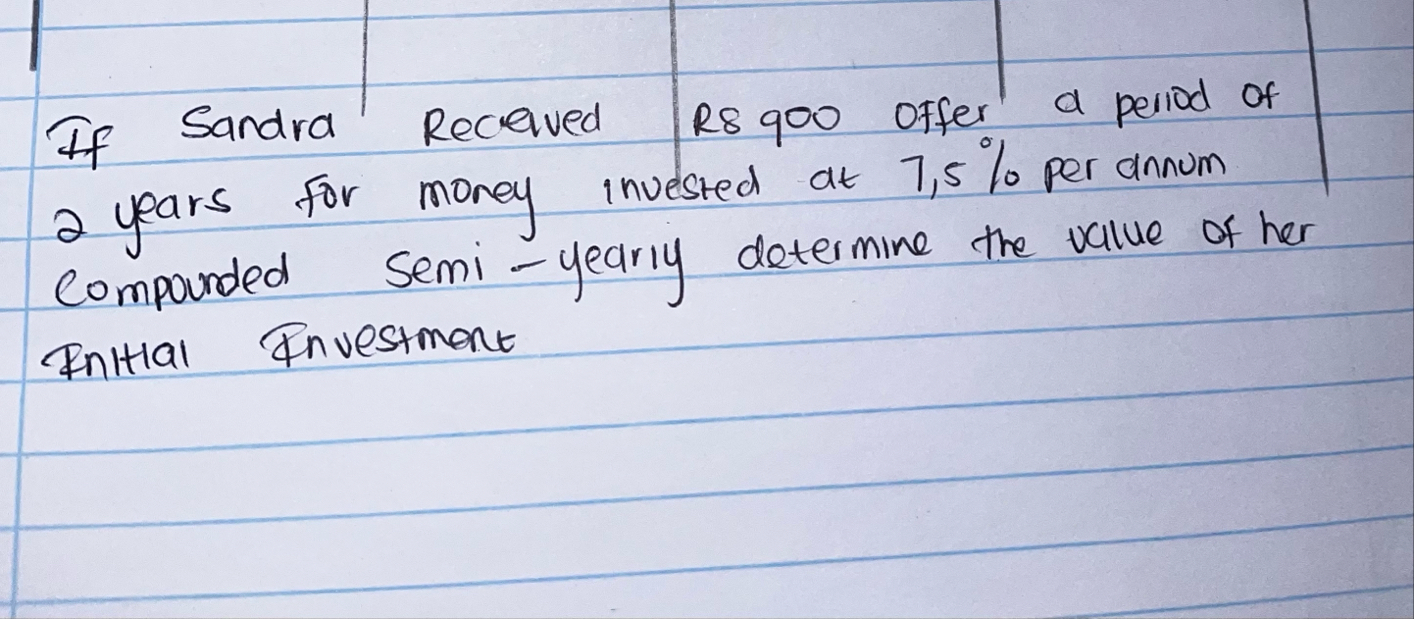 If Sandra Received R8 900 Offer a period of
2 years for money invested at 7,5% per annum
Compounded Semi-yearly determine the value of her
Initial Investment